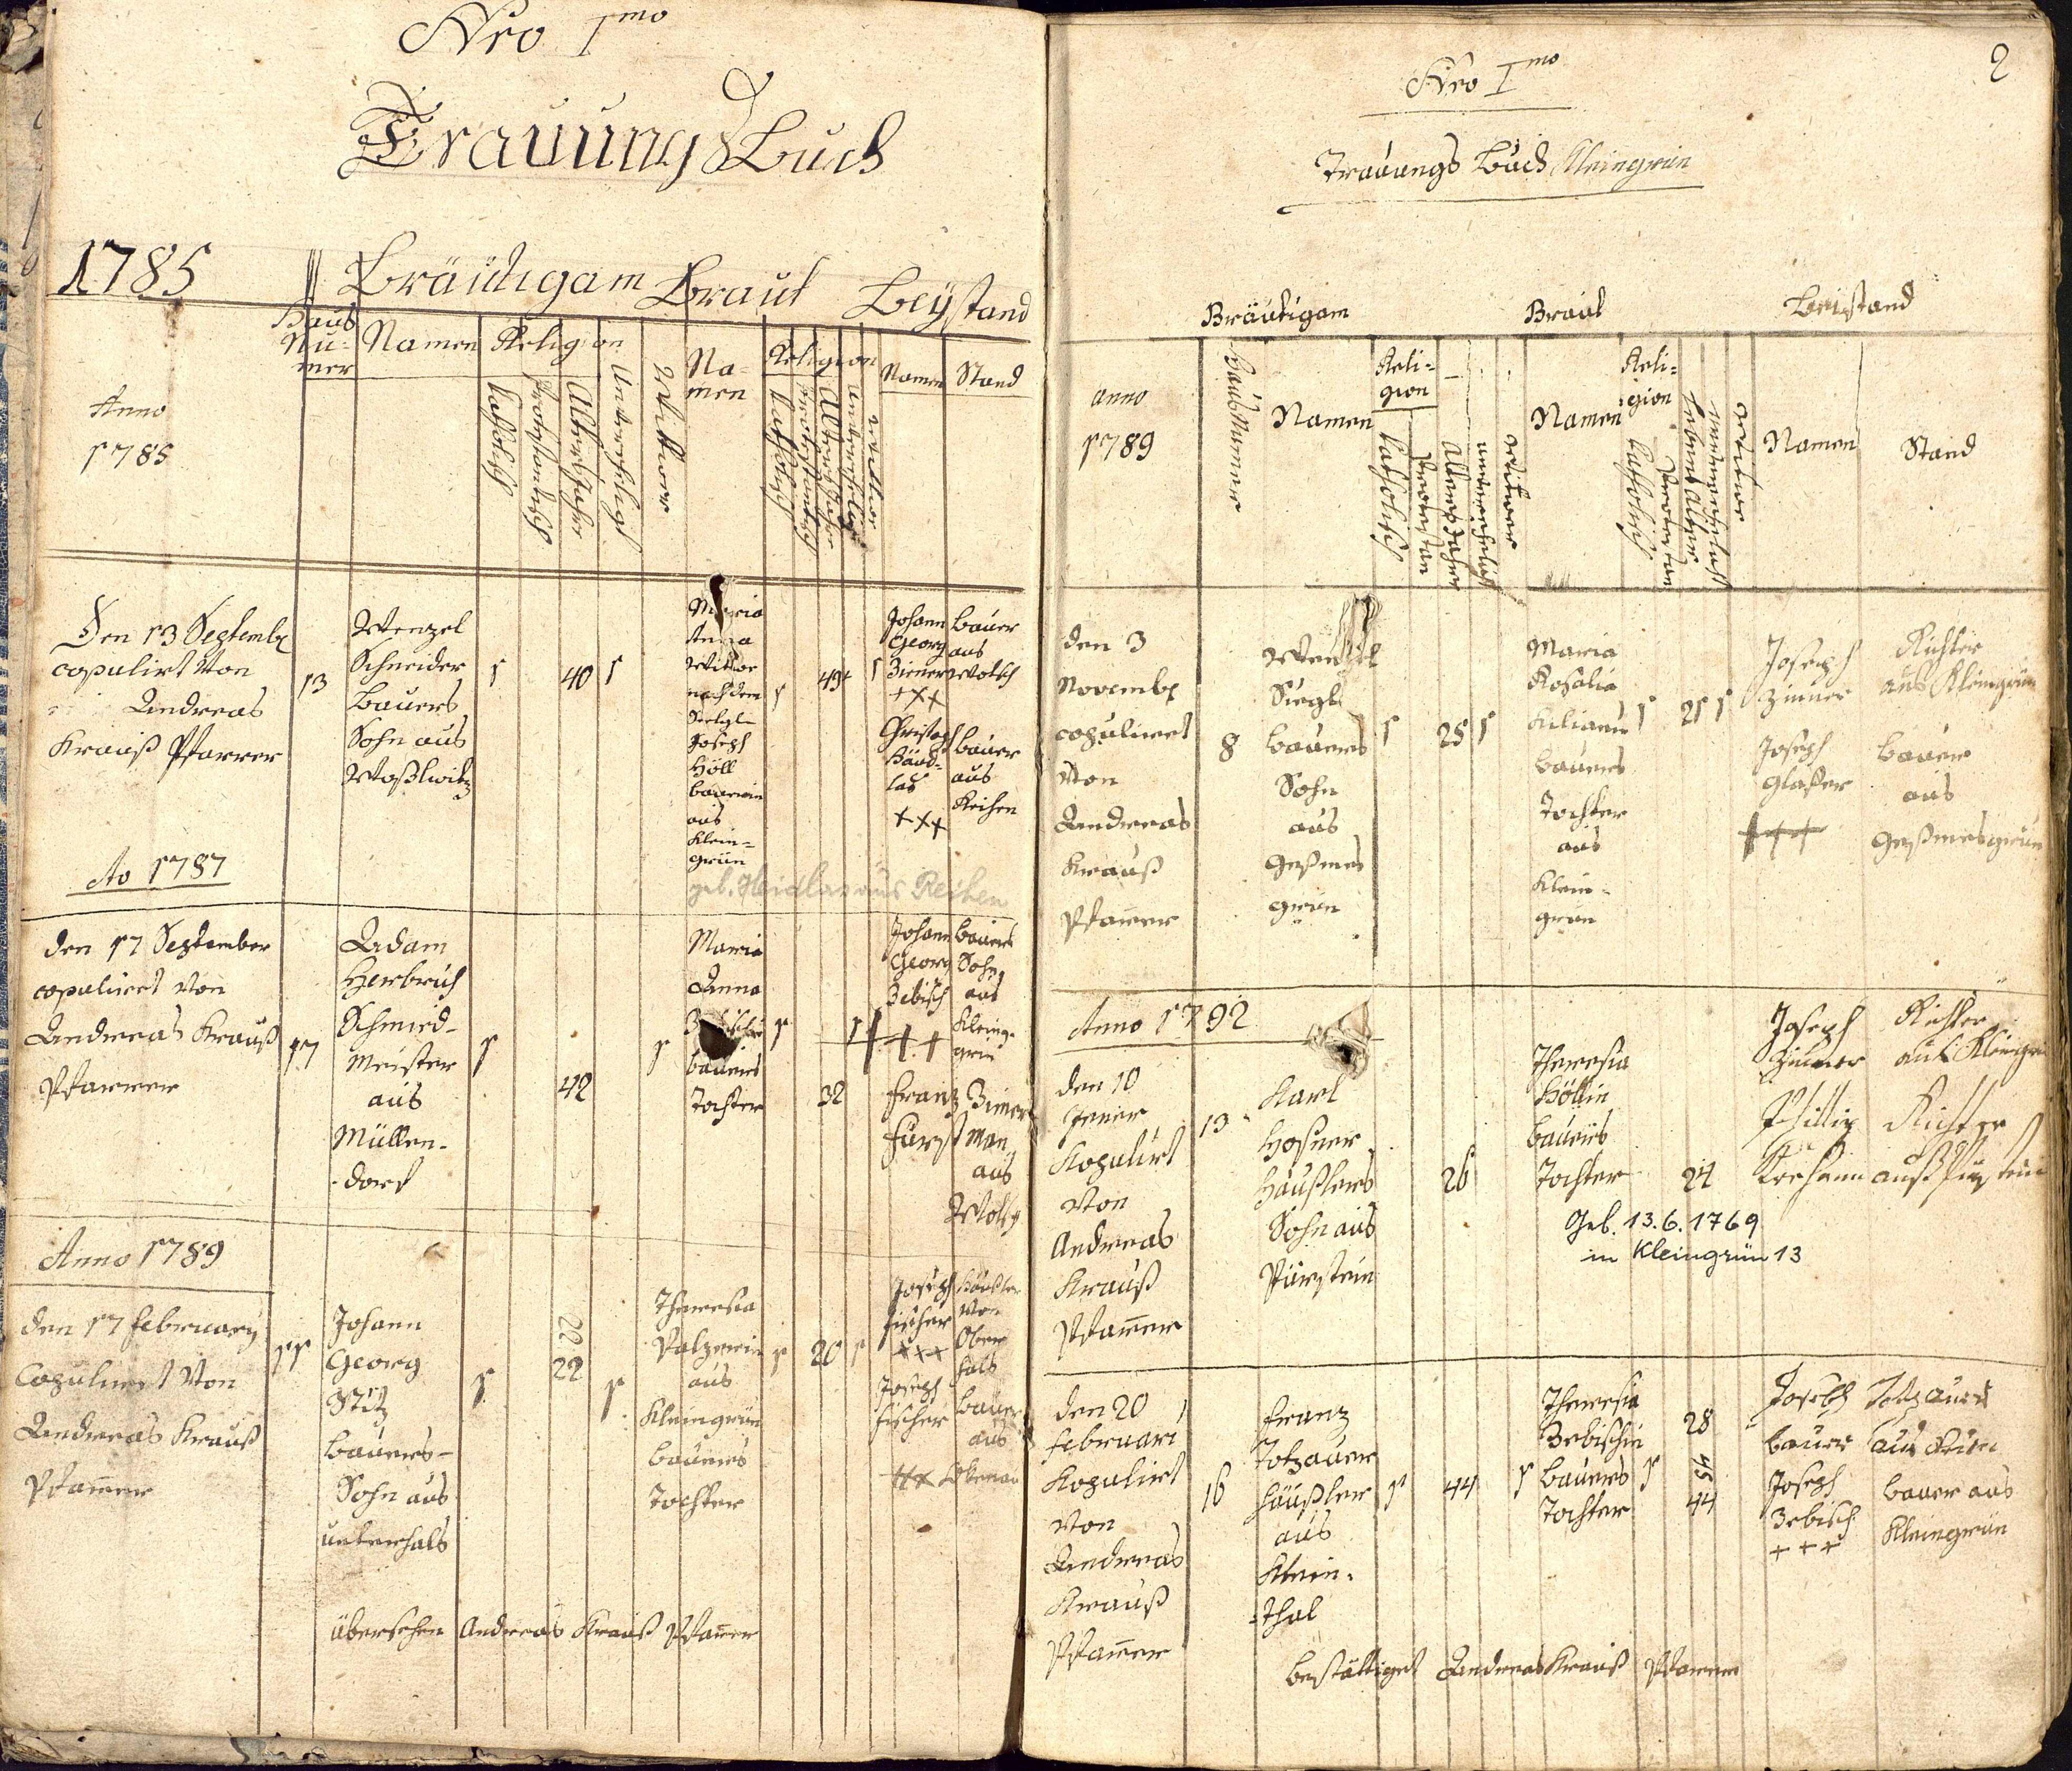 Nro I mo
Trauungs Buch
1785 Bräutigam Braut Beystand
Anno
1785
Haus
Nu-
mer
Namen
Religion
Katholisch
Protestantisch
Alters Jahr
Unterehligt
Wittwer
Na-
men
Religion
Katholisch
Protestantisch
Alters Jahr
Wittwe
Namen
Stand
Den 13 Septembr
copulirt Von
Andreas
Krauß Pfarrer
13
Wenzel
Schneider
Bauers
Sohn aus
Woßlwitz
1
40
1
Maria
Anna
Wittwe
nach dem
Seeligl
Joseph
Höll
bauerin
aus
Klein-
grün
geb. Heidlas aus Reihen
1
49
1
Johann
Georg
Zimer
+++
Christoph
Häud-
las
+++
Bauer
aus
Wotsch
bauer
aus
Reihen
Ao 1787
den 17 September
copuliret von
Andreas Krauß
Pfarrer
17
Adam
Herbrich
Schmied-
Meister
aus
Müllen-
dorf
1
42
1
Maria
Anna
bauers
Tochter
1
32
1
Johann
Georg
Zebisch
+++
Franz
Fürst
bauers
Sohn
aus
Kleing-
grün
Zimer
Man
aus
Wotsch
Anno 1789
den 17 february
Copuliret Von
Andreas Krauß
Pfarrer
11
Johann
Georg
Stitz
bauers-
Sohn aus
unterhals
1
22
22
1
Theresia
Palzerin
aus
Kleingrün
bauers
Tochter
1
20
1
Joseph
fischer
+++
Joseph
fischer
+++
Häußler
Von
Ober
hals
bauer
aus
übersehen Andreas Krauß Pfarrer
2
Nro I mo
Trauungs Buch Kleingrün
Bräutigam Braut Beistand
anno
1789
Haus Numer
Namen
Reli-
gion
Katholisch
Protestan
Alters Jahre
unverehelicht
Witwer
Namen
Reli-
gion
Katholisch
Protestan
Lebens Alter
unverehelicht
Witwe
Namen
Stand
den 3
Novembr
copuliret
Von
Andreas
Krauß
Pfarrer
8
Wenzel
Siegl
bauers
Sohn
aus
Geßmes
grün
1
25
1
Maria
Rosalia
Kilianin
bauers
Tochter
aus
Klein-
grün
1
21
1
Joseph
Zimer
Joseph
Glaßer
+++
Richter
aus Kleingrün
bauer
aus
Geßmesgrün
Anno 1792
den 10
Jener
Kopulirt
Von
Andreas
Krauß
Pfarrer
13
Karl
Hosner
Häußlers
Sohn aus
Pürstein
26
Theresia
Höllin
bauers
Tochter
24
Geb. 13.6.1769
in Kleingrün 13
Joseph
Zimer
Phillip
Richter
aus Kleingrün
Richter
auß Pürstein
den 20
februari
Kopulirt
Von
Andreas
Krauß
Pfarrer
16
Franz
Totzauer
Häußler
aus
Klein-
Thal
1
44
1
Theresia
Zebischin
bauers
Tochter
1
28
45
44
Joseph Totzauer
bauer aus
Joseph
Zebisch
+++
bauer aus
Kleingrün
bestättiget Andreas Krauß Pfarrer